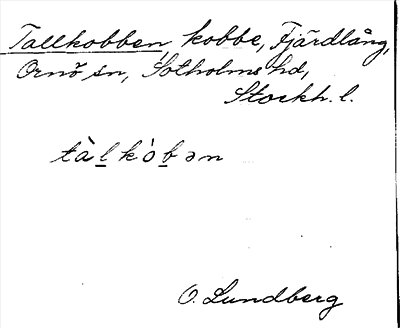 Tallkobben, kobbe, Fjärdlång,
Ornö sn, Sotholms hd,
Stockh. l.
tàl̲kòb̲ən
O. Lundberg